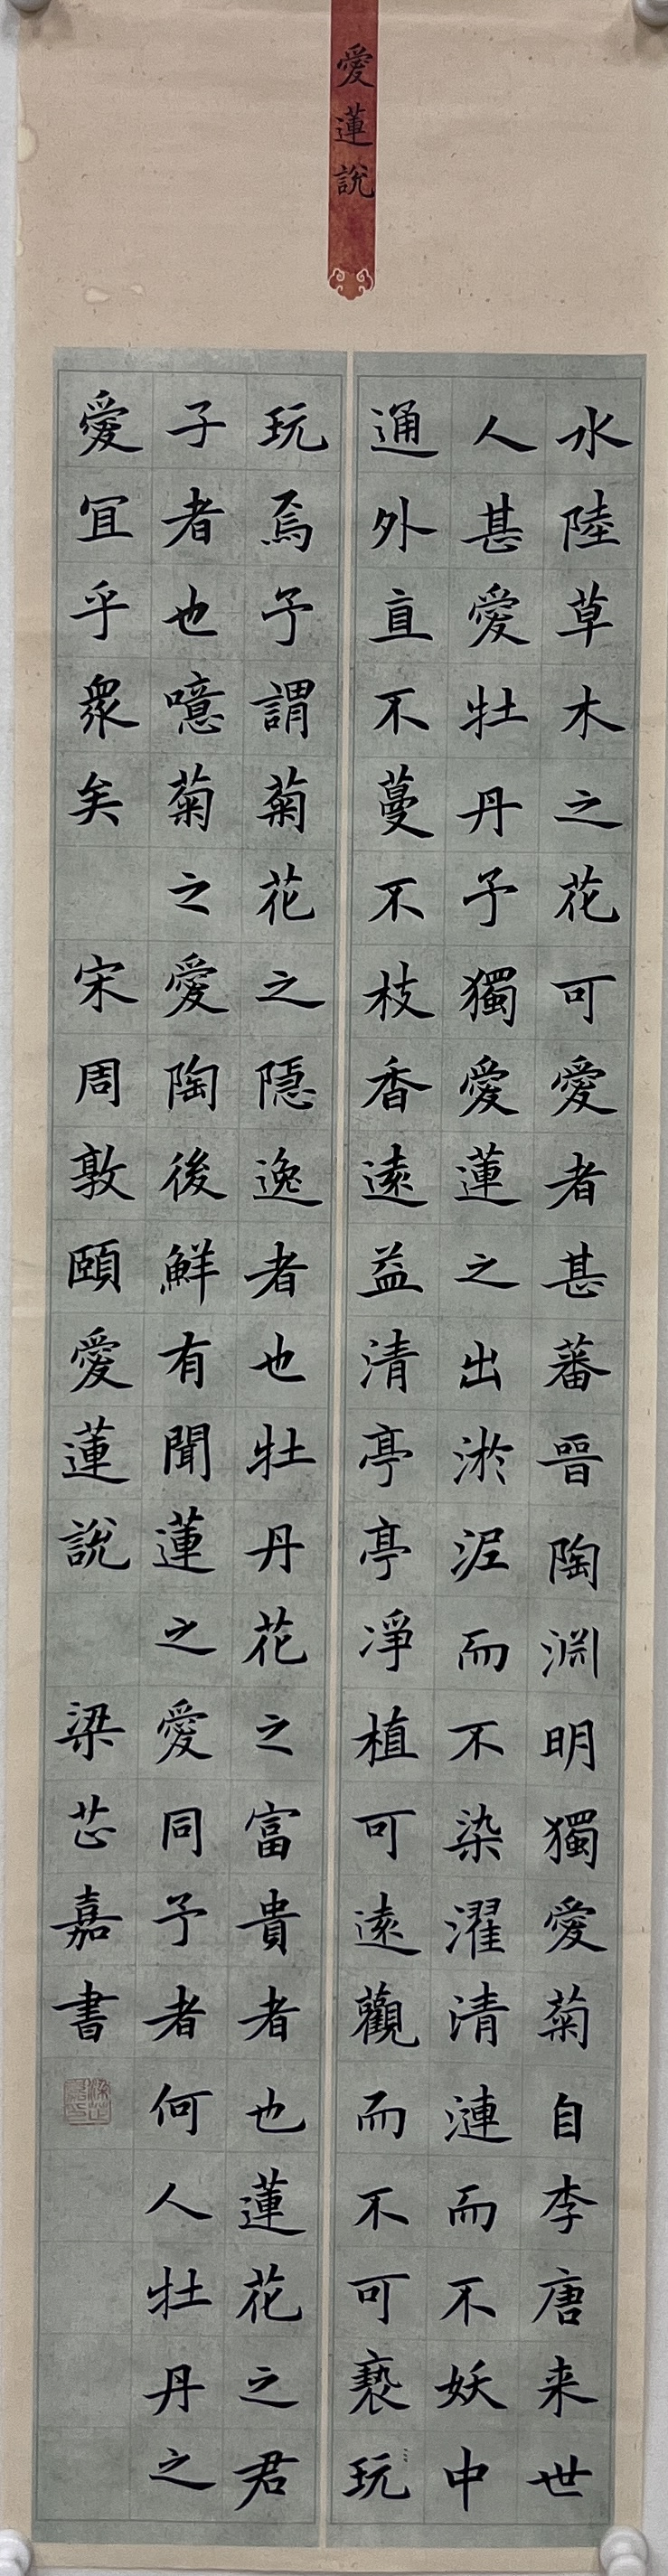 愛蓮說
水陸草木之花可愛者甚蕃晉陶淵明獨愛菊自李唐来世
人甚愛牡丹予獨愛蓮之出淤泥而不染濯清漣而不妖中
通外直不蔓不枝香遠益清亭亭淨植可遠觀而不可褻玩
玩焉予謂菊花之隱逸者也牡丹花之富貴者也蓮花之君
子者也噫菊之愛陶後鮮有聞蓮之愛同予者何人牡丹之
愛宜乎衆矣 宋周敦頤愛蓮說 梁芷嘉書